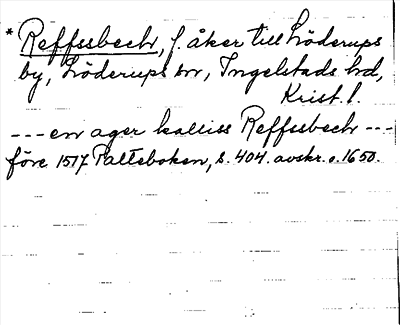 * Reffssbech, f. åker till Löderups
by, Löderups sn, Ingelstads hd,
Krist. l.
--- en ager kalliss Reffssbech ---
före 1517 Palteboken, s. 404. avskr. o. 1650.